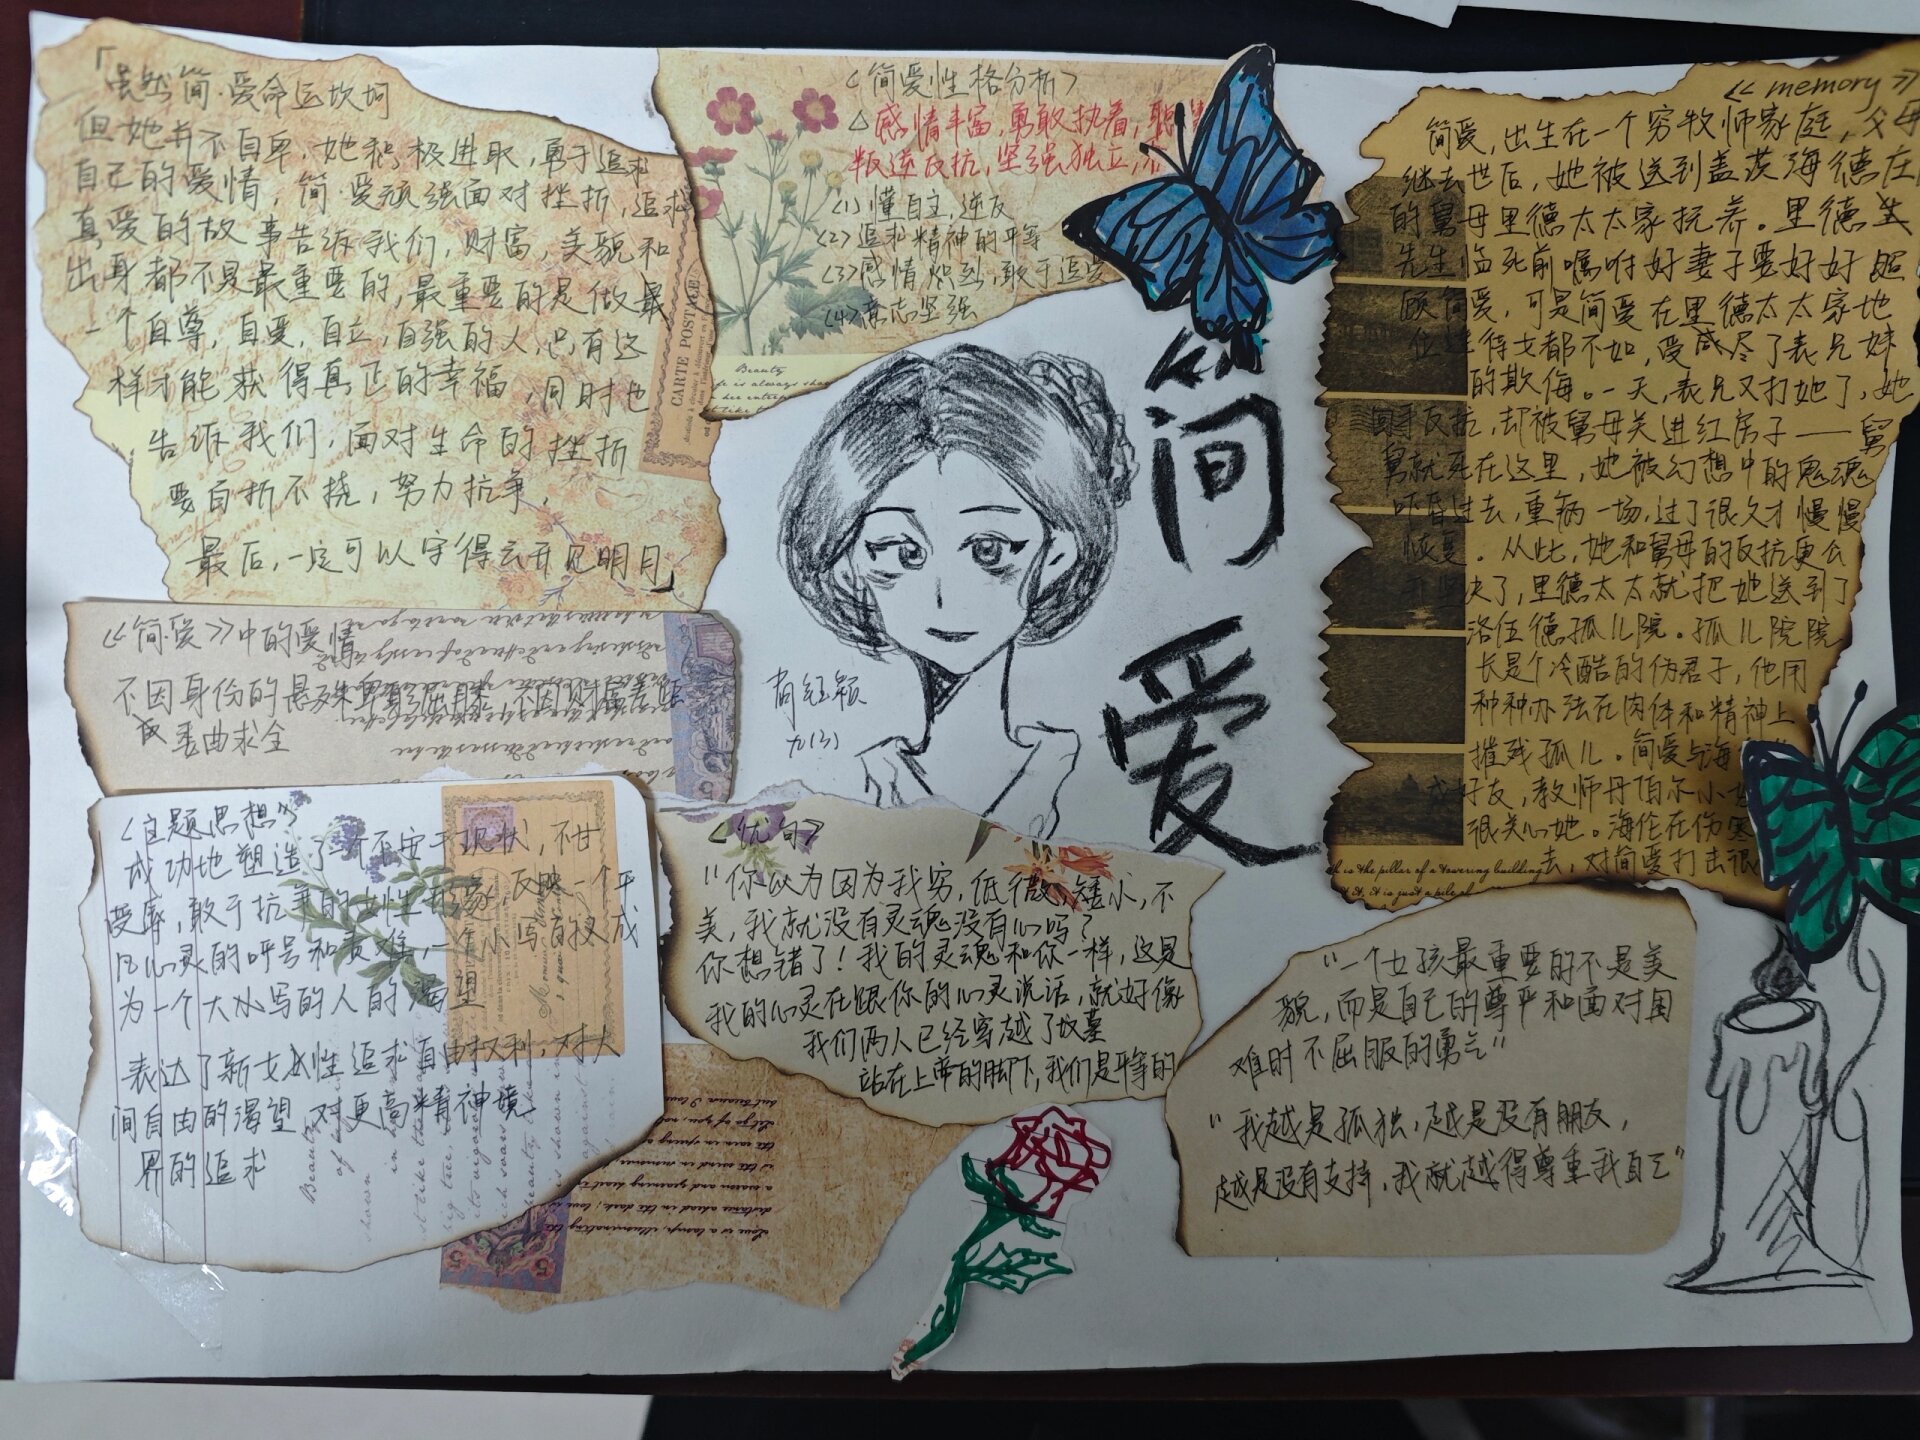 「虽然简·爱命运坎坷
但她并不自卑,她积极进取,勇于追求
自己的爱情,简·爱顽强面对挫折,追求
真爱的故事告诉我们,财富,美貌和
出身都不是最重要的,最重要的是做最
一个自尊,自爱,自立,自强的人,只有这
样才能获得真正的幸福,同时也
告诉我们,面对生命的挫折
要百折不挠,努力抗争,
最后,一定可以守得云开见明月」
<简爱性格分析>
△感情丰富,勇敢执着,
叛逆反抗,坚强独立,
(1)懂自主,逆反
(2)追求精神的平等
(3)感情炽烈,敢于追
(4)意志坚强
CARTE POSTALE
Beauty
简
爱
<<memory>>
简爱,出生在一个穷牧师家庭,父母
继去世后,她被送到盖茨海德庄
的舅母里德太太家抚养。里德
先生临死前嘱咐好妻子要好好照
顾简爱,可是简爱在里德太太家地
位连得女都不如,受尽了表兄妹
的欺侮。一天,表兄又打她了,她
回手反抗,却被舅母关进红房子——舅
舅就死在这里,她被幻想中的鬼魂
吓昏过去,重病一场,过了很久才慢慢
恢复。从此,她和舅母的反抗更公
开坚决了,里德太太就把她送到了
洛伍德孤儿院。孤儿院院
长是个冷酷的伪君子,他用
种种办法在肉体和精神上
摧残孤儿。简爱与海
成好友,教师丹伯尔小
很关心她。海伦在伤寒
去,对简爱打击很
is the pillar of a towering building
》简·爱》中的爱情
不因身份的悬殊卑躬屈膝,不因财富差距
或委曲求全
九(3)
<主题思想>
成功地塑造了一个不安于现状,不甘
受辱,敢于抗争的女性形象,反映一个平
凡心灵的呼号和责难,一个小写的人成
为一个大小写的人的渴望
表达了新女性追求自由权利,对人
间自由的渴望,对更高精神境
界的追求
<优句>
"你以为因为我穷,低微,矮小,不
美,我就没有灵魂没有心吗?
你想错了!我的灵魂和你一样,这是
我的心灵在跟你的心灵说话,就好像
我们两人已经穿越了坟墓
站在上帝的脚下,我们是平等的
"一个女孩最重要的不是美
貌,而是自己的尊严和面对困
难时不屈服的勇气"
"我越是孤独,越是没有朋友,
越是没有支持,我就越得尊重我自己"